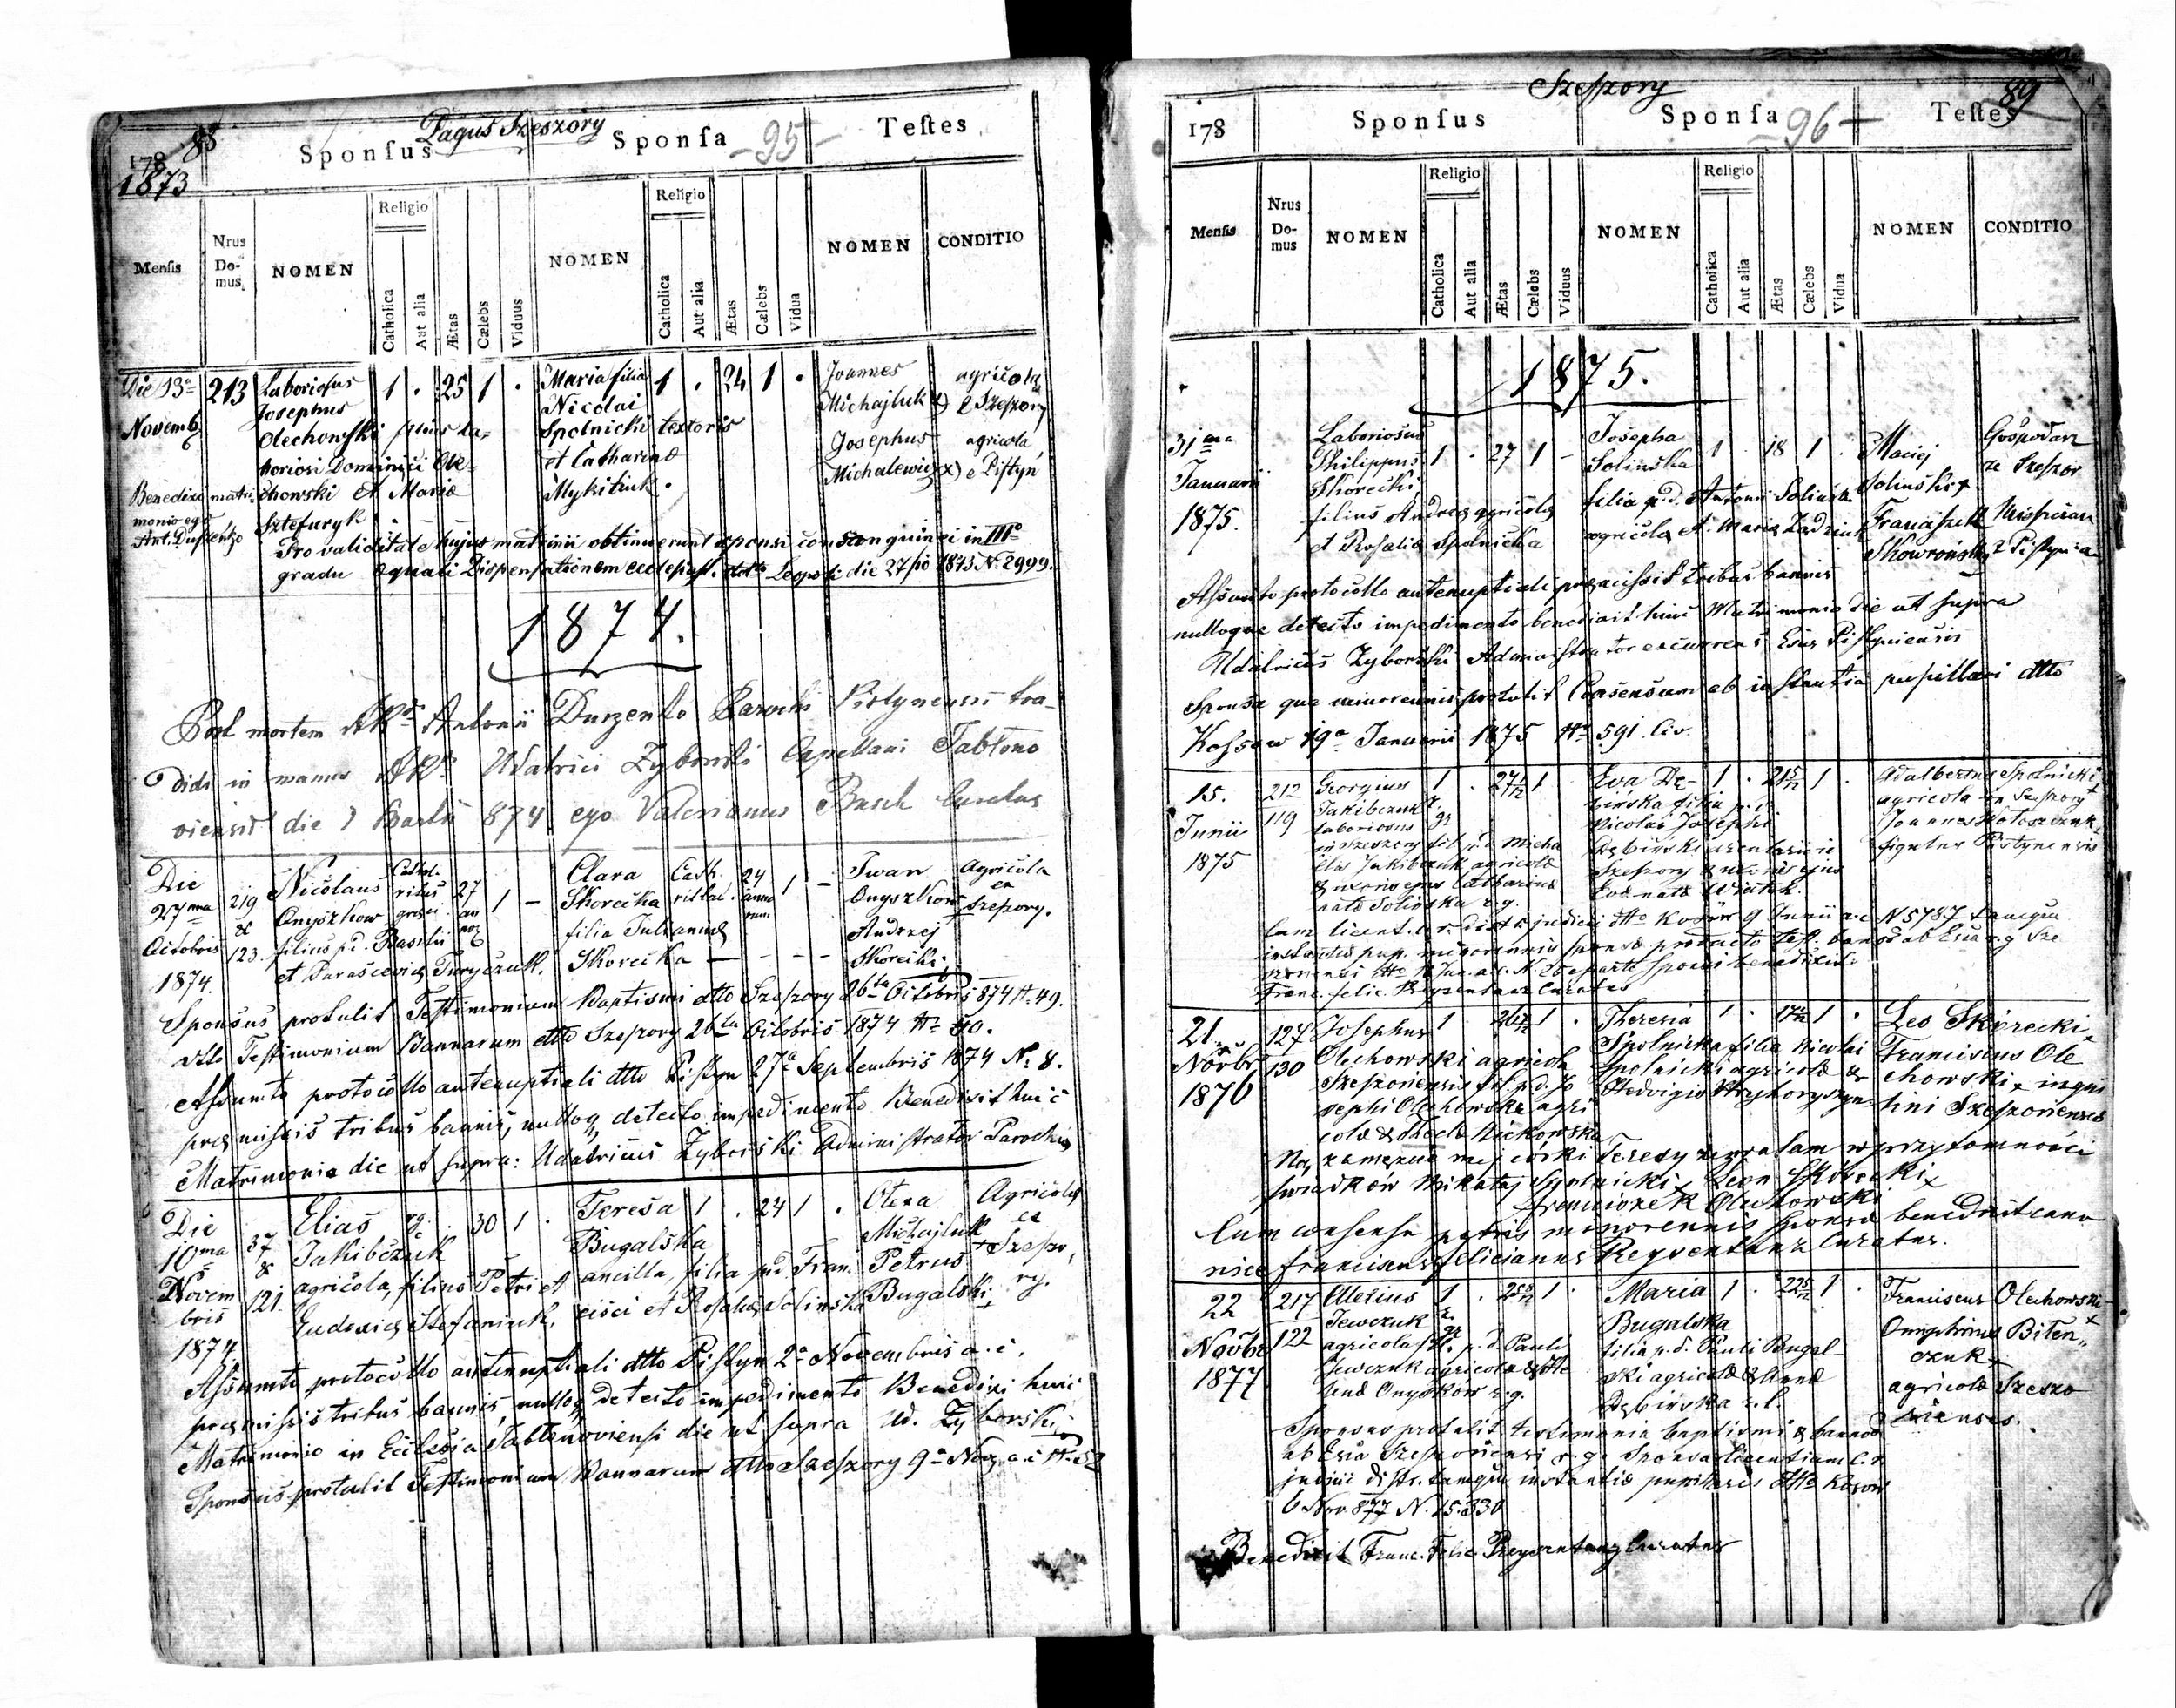 88
Pagus Szeszory
178
1873
Sponſus
Sponſa
-95-
Teſtes
Menſis
Nrus
Do-
mus.
NOMEN
Religio
Catholica
Aut alia
Ætas
Cælebs
Viduus
NOMEN
Religio
Catholica
Aut alia
Ætas
Cælebs
Vidua
NOMEN
CONDITIO
Die 13a
Novemb
213
Laboriosus
Josephus
Olechowski filius La=
boriosi Dominici Ole=
chowski et Mariæ
Sztefuryk
1 . 25 1 .
Maria filia
Nicolai
Spolnicki textoris
et Catharinæ
Mykitiuk.
1 . 24 1 .
Joannes
Michajluk x)
Josephus
Michalewicz x)
agricola
e Szeszory
agricola
e Pistyn
Benedixi matri
monio ego
Ant. Durzenko
Pro validitate hujus matrimii obtinuerunt sponsi consanguinei in IIIo
gradu æquali Dispensationem die 27/10 1873 N. 2999.
1874.
Post mortem Antonii Durzenko Parochi Pistynensis tra-
didi in manus Udalrici Zyborski Capellani Jabłono
viensis die 874 ego Valerianus Curatus
Die
27ma
Octobris
1874.
219
&
123.
Nicolaus
Onyszkow
filius p.d. Basilii
et Parascevia Turyczuk.
Cathol.
ritus
græci
27
an
1 -
Clara
Skorecka
filia Julianna
Skorecka - - - -
Cath.
rit lat.
24
anno
rum
1 -
Iwan
Onyszkow
Andrzej
Skorecki
Agricola
ex
Szeszory.
Sponsus protulit Testimonium Baptismi dtto Szeszory 26ta Octobris 874 N. 49.
dtto Testimonium Bannorum dtto Szeszory 26ta Octobris 1874 No 50.
Assumto protocollo antenuptiali dtto Pistyn 27a Septembris 1874 N. 8.
præmissis tribus bannis, nulloq detecto impedimento Benedixit huic
Matrimonio die ut supra: Udalricus Zyborski Administrator Parochiæ
Die
10ma
Novem
bris
1874
37
&
121.
Elias
Jakibczuk
agricola, filius Petri et
Eudoxia Stefaniuk.
rg . 30 1 .
Teresa
Bugalska
ancilla, filia p.d. Fran
cisci et Rosalia Solinska
1 . 24 1 .
Olexa
Michajluk
Petrus
Bugalski
Agricola
ex
Szeszo
ry.
Assumto protocollo antenuptiali dtto Pistyn 2a Novembris a. c.
præmissis tribus bannis, nulloq detecto impedimento Benedixi huic
Matrimonio in Ecclesia Jabłonoviensi die ut supra Ud. Zyborski
Sponsus protulit Testimonium Bannorum dtto Szeszory 9a Nov. a. c. N. 52
Szeszory
89
178
Sponſus
Sponſa
-96-
Teſtes
Menſis
Nrus
Do-
mus
NOMEN
Religio
Catholica
Aut alia
Ætas
Cælebs
Viduus
NOMEN
Religio
Catholica
Aut alia
Ætas
Cælebs
Vidua
NOMEN
CONDITIO
1875.
31ma
Januarii
1875.
Laboriosus
Philippus
Skorecki
filius Andreæ agricolæ
et Rosaliæ Spolnicka
1 . 27 1 -
Josepha
Solinska
filia p.d. Antonii Solinska
agricola et Maria Zadziuk
1 . 18 1 .
Maciej
Solinski +
Franciszek
Skowroński
Gospodarz
ze Szeszor
Mieszczan
z Pistynia
Assumto protocollo antenuptiali præmissis tribus bannis
nulloque detecto impedimento benedixit huic Matrimonio die ut supra
Udalricus Zyborski Administrator excurrens Eccl. Pistynensis
Sponsa qua minorennis protulit Consensum ab instantia pupillari dtto
Kossow 19a Januarii 1875 No 591 civ.
15.
Junii
1875
212
119
Georgius
Jakibczuk
laboriosus
in Szeszory fil. p.d. Micha
elis Jakibczuk agricolæ
& uxoris ejus Catharinæ
natæ Solinska r.g.
1 . 27 1
r.
gr
Eva Dę-
binska filia p.d.
Nicolai Josephi
Dębinski
Szeszory & uxoris ejus
Evæ natæ Wiatek.
1 . 21 1 .
Adalbertus Spolnicki
agricola in Szeszory +
Joannes
figulus Pistynensis
Cum licent. c.r. distr. judicii dtto Kosów 9 Junii a.c. N 5787 tamqua
instantiæ pup. minorennis sponsæ producto test. bannor ab Eccl. r.g. Sze
szoriensi dtto Jun. a.c. N. 26 parte sponsi benedixit
Franc. Felic. Reyzentanz Curatus
21.
Novbr
1876
127
130
Josephus
Olechowski agricola
Szeszoriensis fil. p.d. Jo
sephi Olechowski agri
colæ & Theclæ Nickowska
1 . 26 1 .
Theresia
Spolnicka filia Nicolai
Spolnicki agricolæ &
Hedvigis
1 . 17 1 .
Leo Skorecki
Franciscus Ole
chowski x inqui
lini Szeszorienses
Na zamęzcie mej córki Teresy zezwalam w przytomności
świadków Mikołaj Spolnicki x Leon Skorecki x
Franciszek Olechowski
Cum consensu patris minorennis sponsæ benedixit cano
nice Franciscus Felicianus Reyzentanz Curatus.
22
Novbr
1877
217
122
Alexius
Jewczuk
agricola fil. p.d. Pauli
Jewczuk agricolæ & He
lenæ Onyskow r.g.
1 . 25 1
r.
gr
Maria
Bugalska
filia p.d. Pauli Bugal-
ski agricolæ & Annæ
Dębinska r.l.
1 . 22 1 .
Franciscus Olechowski
x
Onuphrius Biten„
czuk x
agricolæ Szeszo
rienses.
Sponsus protulit testimonia baptismi & bannor
ab Eccl. Szeszoriensi r.g. Sponsa licentiam c.r.
judicii distr. tamqua instantiæ pupillaris dtto Kosow
6 Nov. 877 N. 15.330
Benedixit Franc. Felic. Reyzentanz Curatus